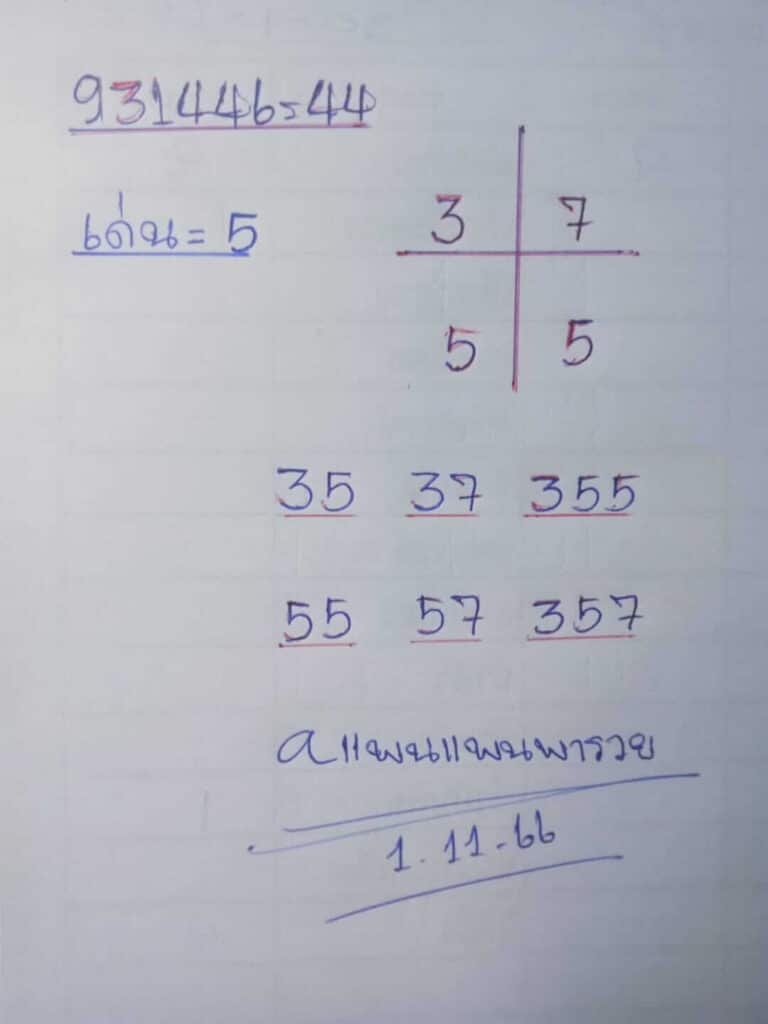 931446=44
เด่น = 5
3 7
5 5
35 37 355
55 57 357
aแพนแพนพารวย
1.11.66